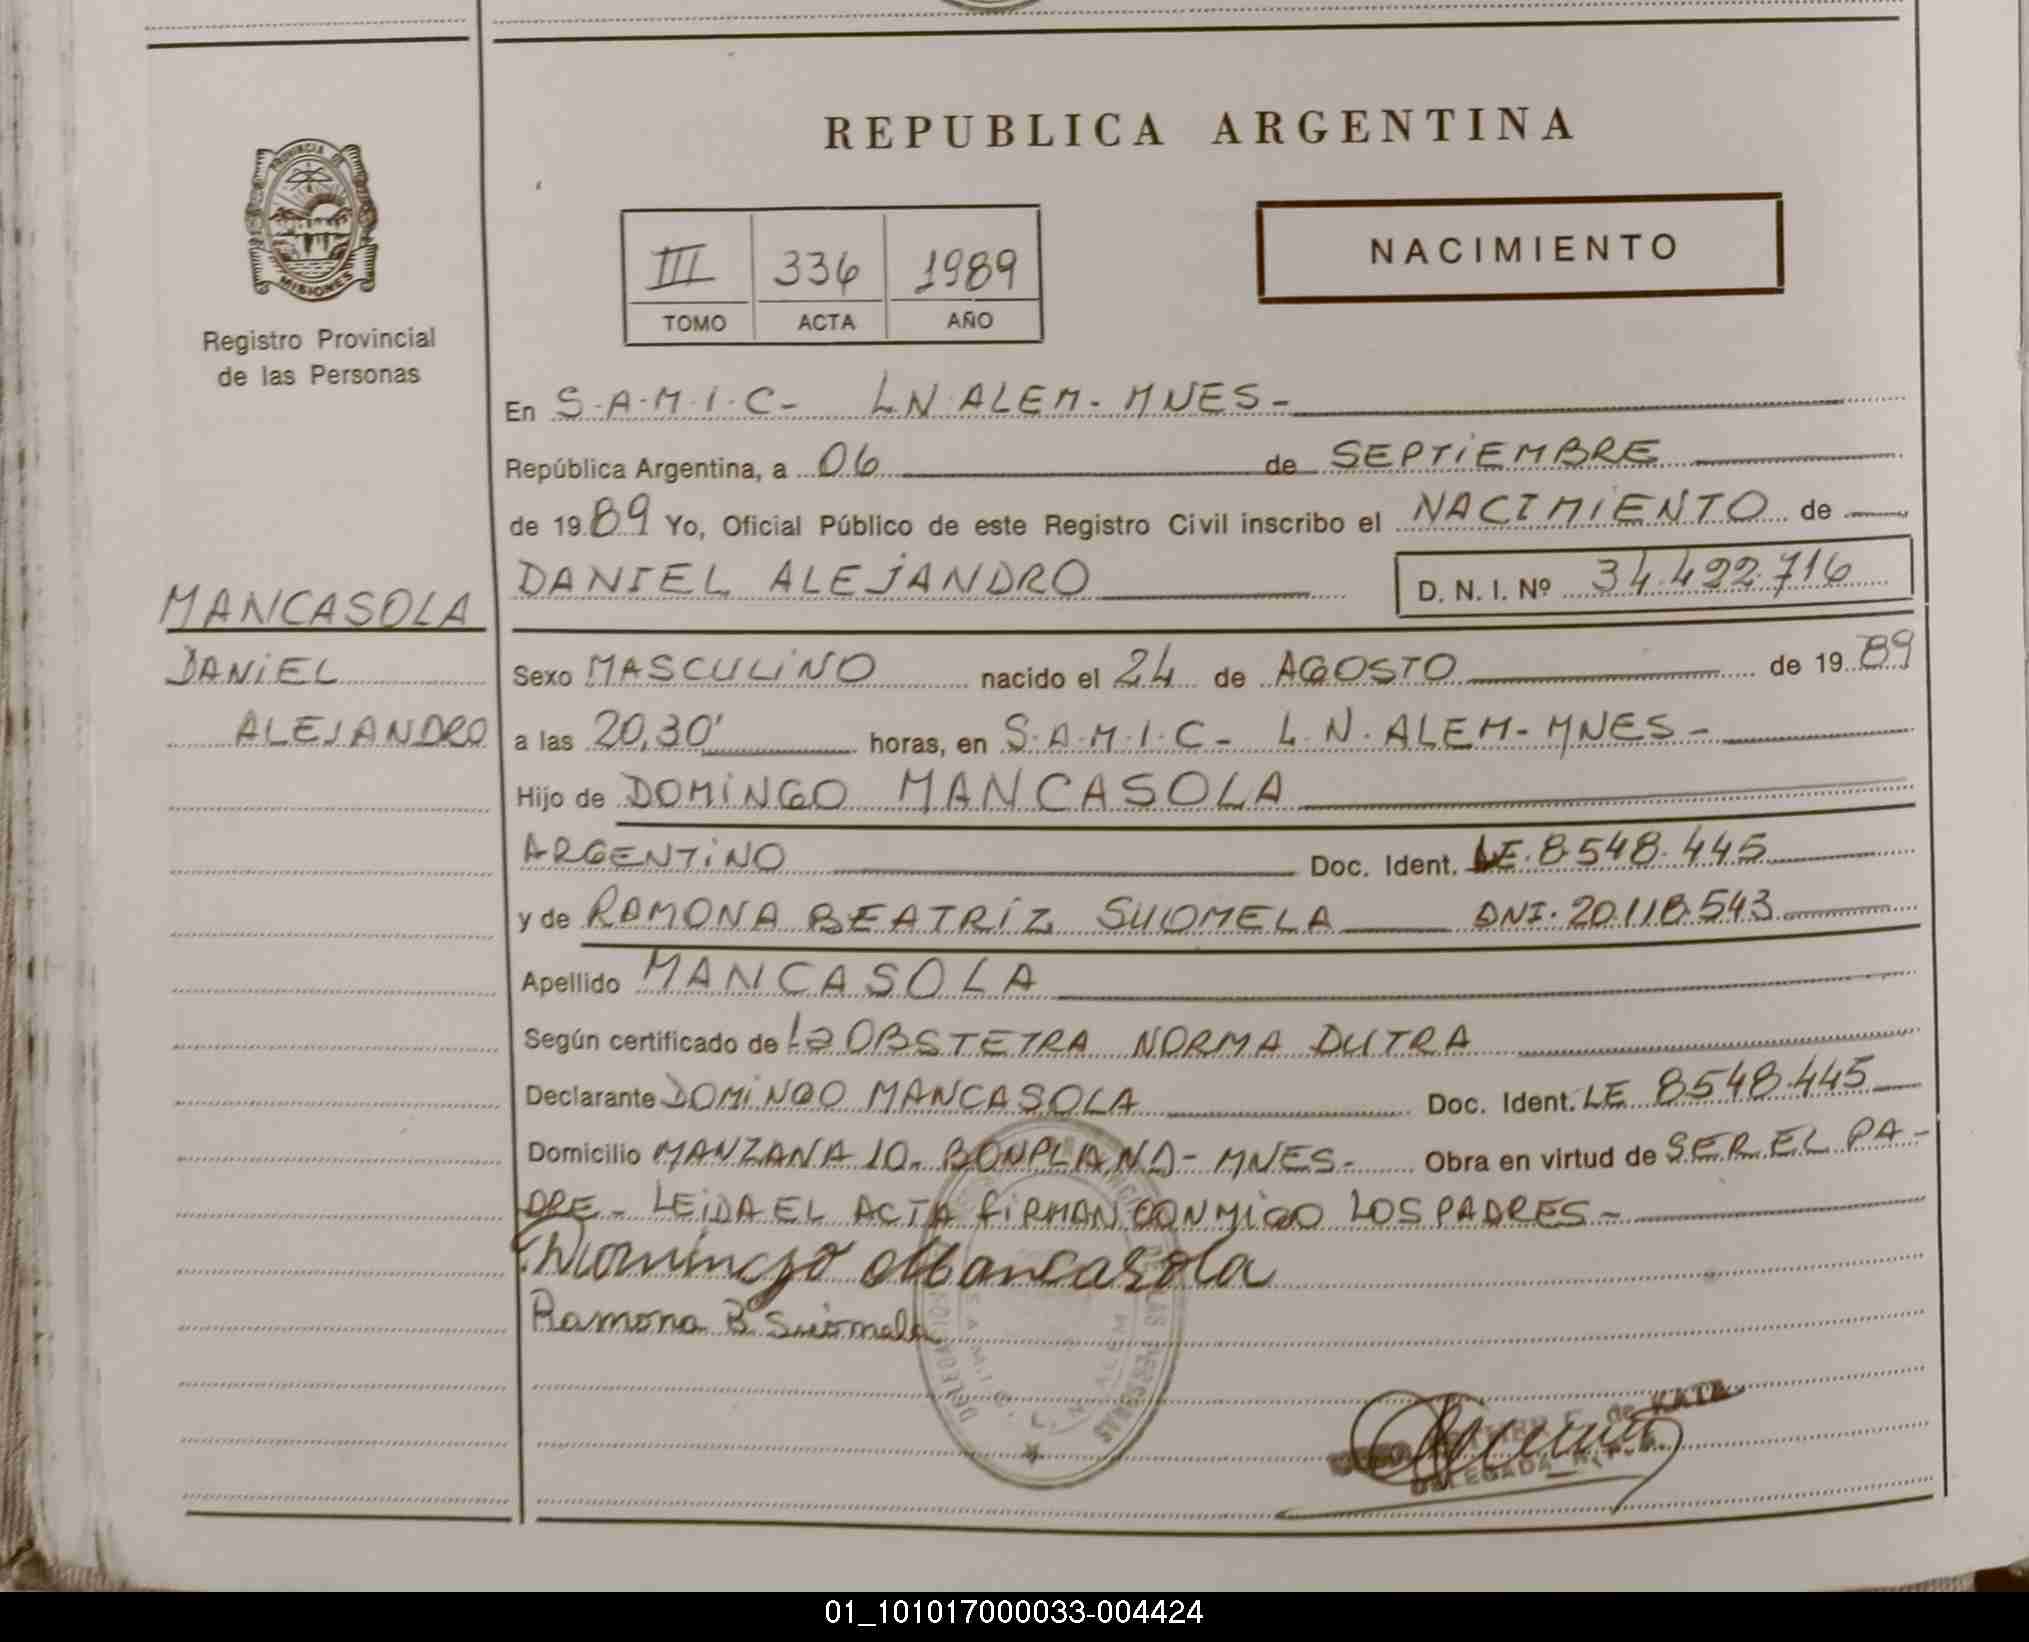 REPUBLICA ARGENTINA
PROVINCIA DE
MISIONES
Registro Provincial
de las Personas
NACIMIENTO
III 336 1989
TOMO ACTA AÑO
En S.A.M.I.C- LN ALEM- MNES-
República Argentina, a 06 de SEPTIEMBRE
de 1989 Yo, Oficial Público de este Registro Civil inscribo el NACIMIENTO de
DANIEL ALEJANDRO D. N. I. Nº 34.422.716
MANCASOLA
DANIEL
ALEJANDRO
Sexo MASCULINO nacido el 24 de AGOSTO de 1989
a las 20,30' horas, en S.A.M.I.C- L.N.ALEM-MNES-
Hijo de DOMINGO MANCASOLA
ARGENTINO Doc. Ident. LE.8548.445
y de RAMONA BEATRIZ SUOMELA DNI.20.118.543
Apellido MANCASOLA
Según certificado de La OBSTETRA NORMA DUTRA
Declarante DOMINGO MANCASOLA Doc. Ident. LE 8548.445
Domicilio MANZANA 10. BONPLAND- MNES- Obra en virtud de SER EL PA-
DRE- LEIDA EL ACTA FIRMAN CONMIGO LOS PADRES-
Domingo Mancasola
Ramona B Suomela
de KATZ
DELEGADA
01_101017000033-004424